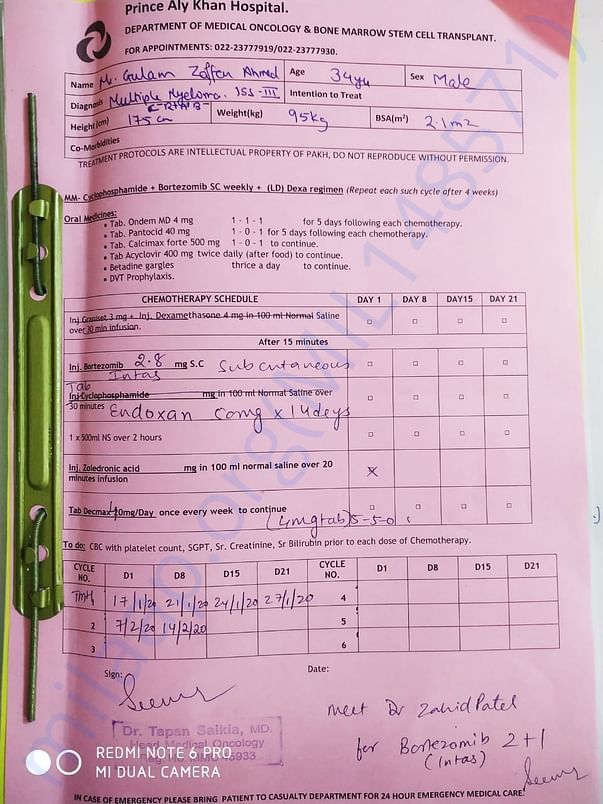 Prince Aly Khan Hospital.
DEPARTMENT OF MEDICAL ONCOLOGY & BONE MARROW STEM CELL TRANSPLANT.
FOR APPOINTMENTS: 022-23777919/022-23777930.
Name Mr. Gulam Zaffar Ahmed Age 34yr Sex Male
Diagnosis Multiple Myeloma. ISS-III Intention to Treat
Height(cm) 175 cm Weight(kg) 95kg BSA(m²) 2.1m2
Co-Morbidities
TREATMENT PROTOCOLS ARE INTELLECTUAL PROPERTY OF PAKH, DO NOT REPRODUCE WITHOUT PERMISSION.
MM- Cyclophosphamide + Bortezomib SC weekly + (LD) Dexa regimen (Repeat each such cycle after 4 weeks)
Oral Medicines:
• Tab. Ondem MD 4 mg 1 - 1 - 1 for 5 days following each chemotherapy.
• Tab. Pantocid 40 mg 1 - 0 - 1 for 5 days following each chemotherapy.
• Tab. Calcimax forte 500 mg 1 - 0 - 1 to continue.
• Tab Acyclovir 400 mg twice daily (after food) to continue.
• Betadine gargles thrice a day to continue.
• DVT Prophylaxis.
CHEMOTHERAPY SCHEDULE DAY 1 DAY 8 DAY15 DAY 21
Inj Graniset 3 mg + Inj. Dexamethasone 4 mg in 100 ml Normal Saline
over 30 min infusion.
After 15 minutes
Inj. Bortezomib 2.8 mg S.C Subcutaneous
Intas
Tab
Inj Cyclophosphamide mg in 100 ml Normal Saline over
30 minutes Endoxan 50mg x 14days
1 x 500ml NS over 2 hours
Inj. Zoledronic acid mg in 100 ml normal saline over 20
minutes infusion x
Tab Decmax 40mg/Day once every week to continue
(4mg tab) 5-5-0
To do: CBC with platelet count, SGPT, Sr. Creatinine, Sr Bilirubin prior to each dose of Chemotherapy.
CYCLE NO. D1 D8 D15 D21 CYCLE NO. D1 D8 D15 D21
TMH 17/1/20 21/1/20 24/1/20 27/1/20 4
2 7/2/20 14/2/20 5
3 6
Sign: Date:
Meet Dr Zahid Patel
for Bortezomib 2+1
(Intas)
Dr. Tapan Saikia, MD.
Head Medical Oncology
IN CASE OF EMERGENCY PLEASE BRING PATIENT TO CASUALTY DEPARTMENT FOR 24 HOUR EMERGENCY MEDICAL CARE.
REDMI NOTE 6 PRO
MI DUAL CAMERA
milaap.org(MIL148571)